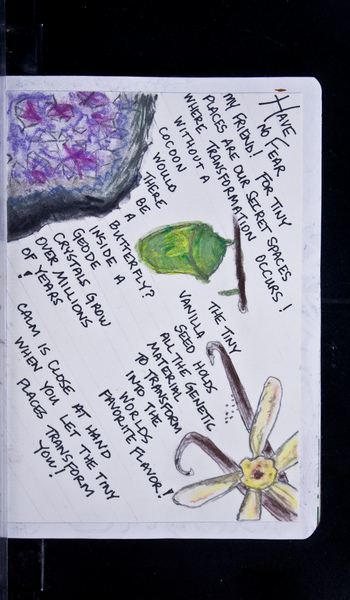 HAVE
NO FEAR
MY FRIEND! FOR TINY
PLACES ARE OUR SECRET SPACES
WHERE TRANSFORMATION OCCURS!
WITHOUT A
COCOON
WOULD
THERE
BE
A
BUTTERFLY?
INSIDE A
GEODE
CRYSTALS GROW
OVER MILLIONS
OF YEARS!
THE TINY
VANILLA
SEED HOLDS
ALL THE GENETIC
MATERIAL
TO TRANSFORM
INTO THE
WORLDS
FAVORITE FLAVOR!
CALM IS CLOSE AT HAND
WHEN YOU LET THE TINY
PLACES TRANSFORM
YOU!